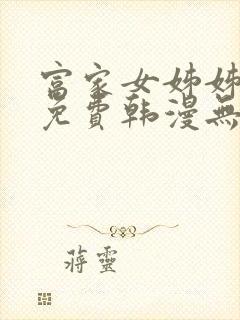 富家女姊姊
免費韩漫無
蔣靈